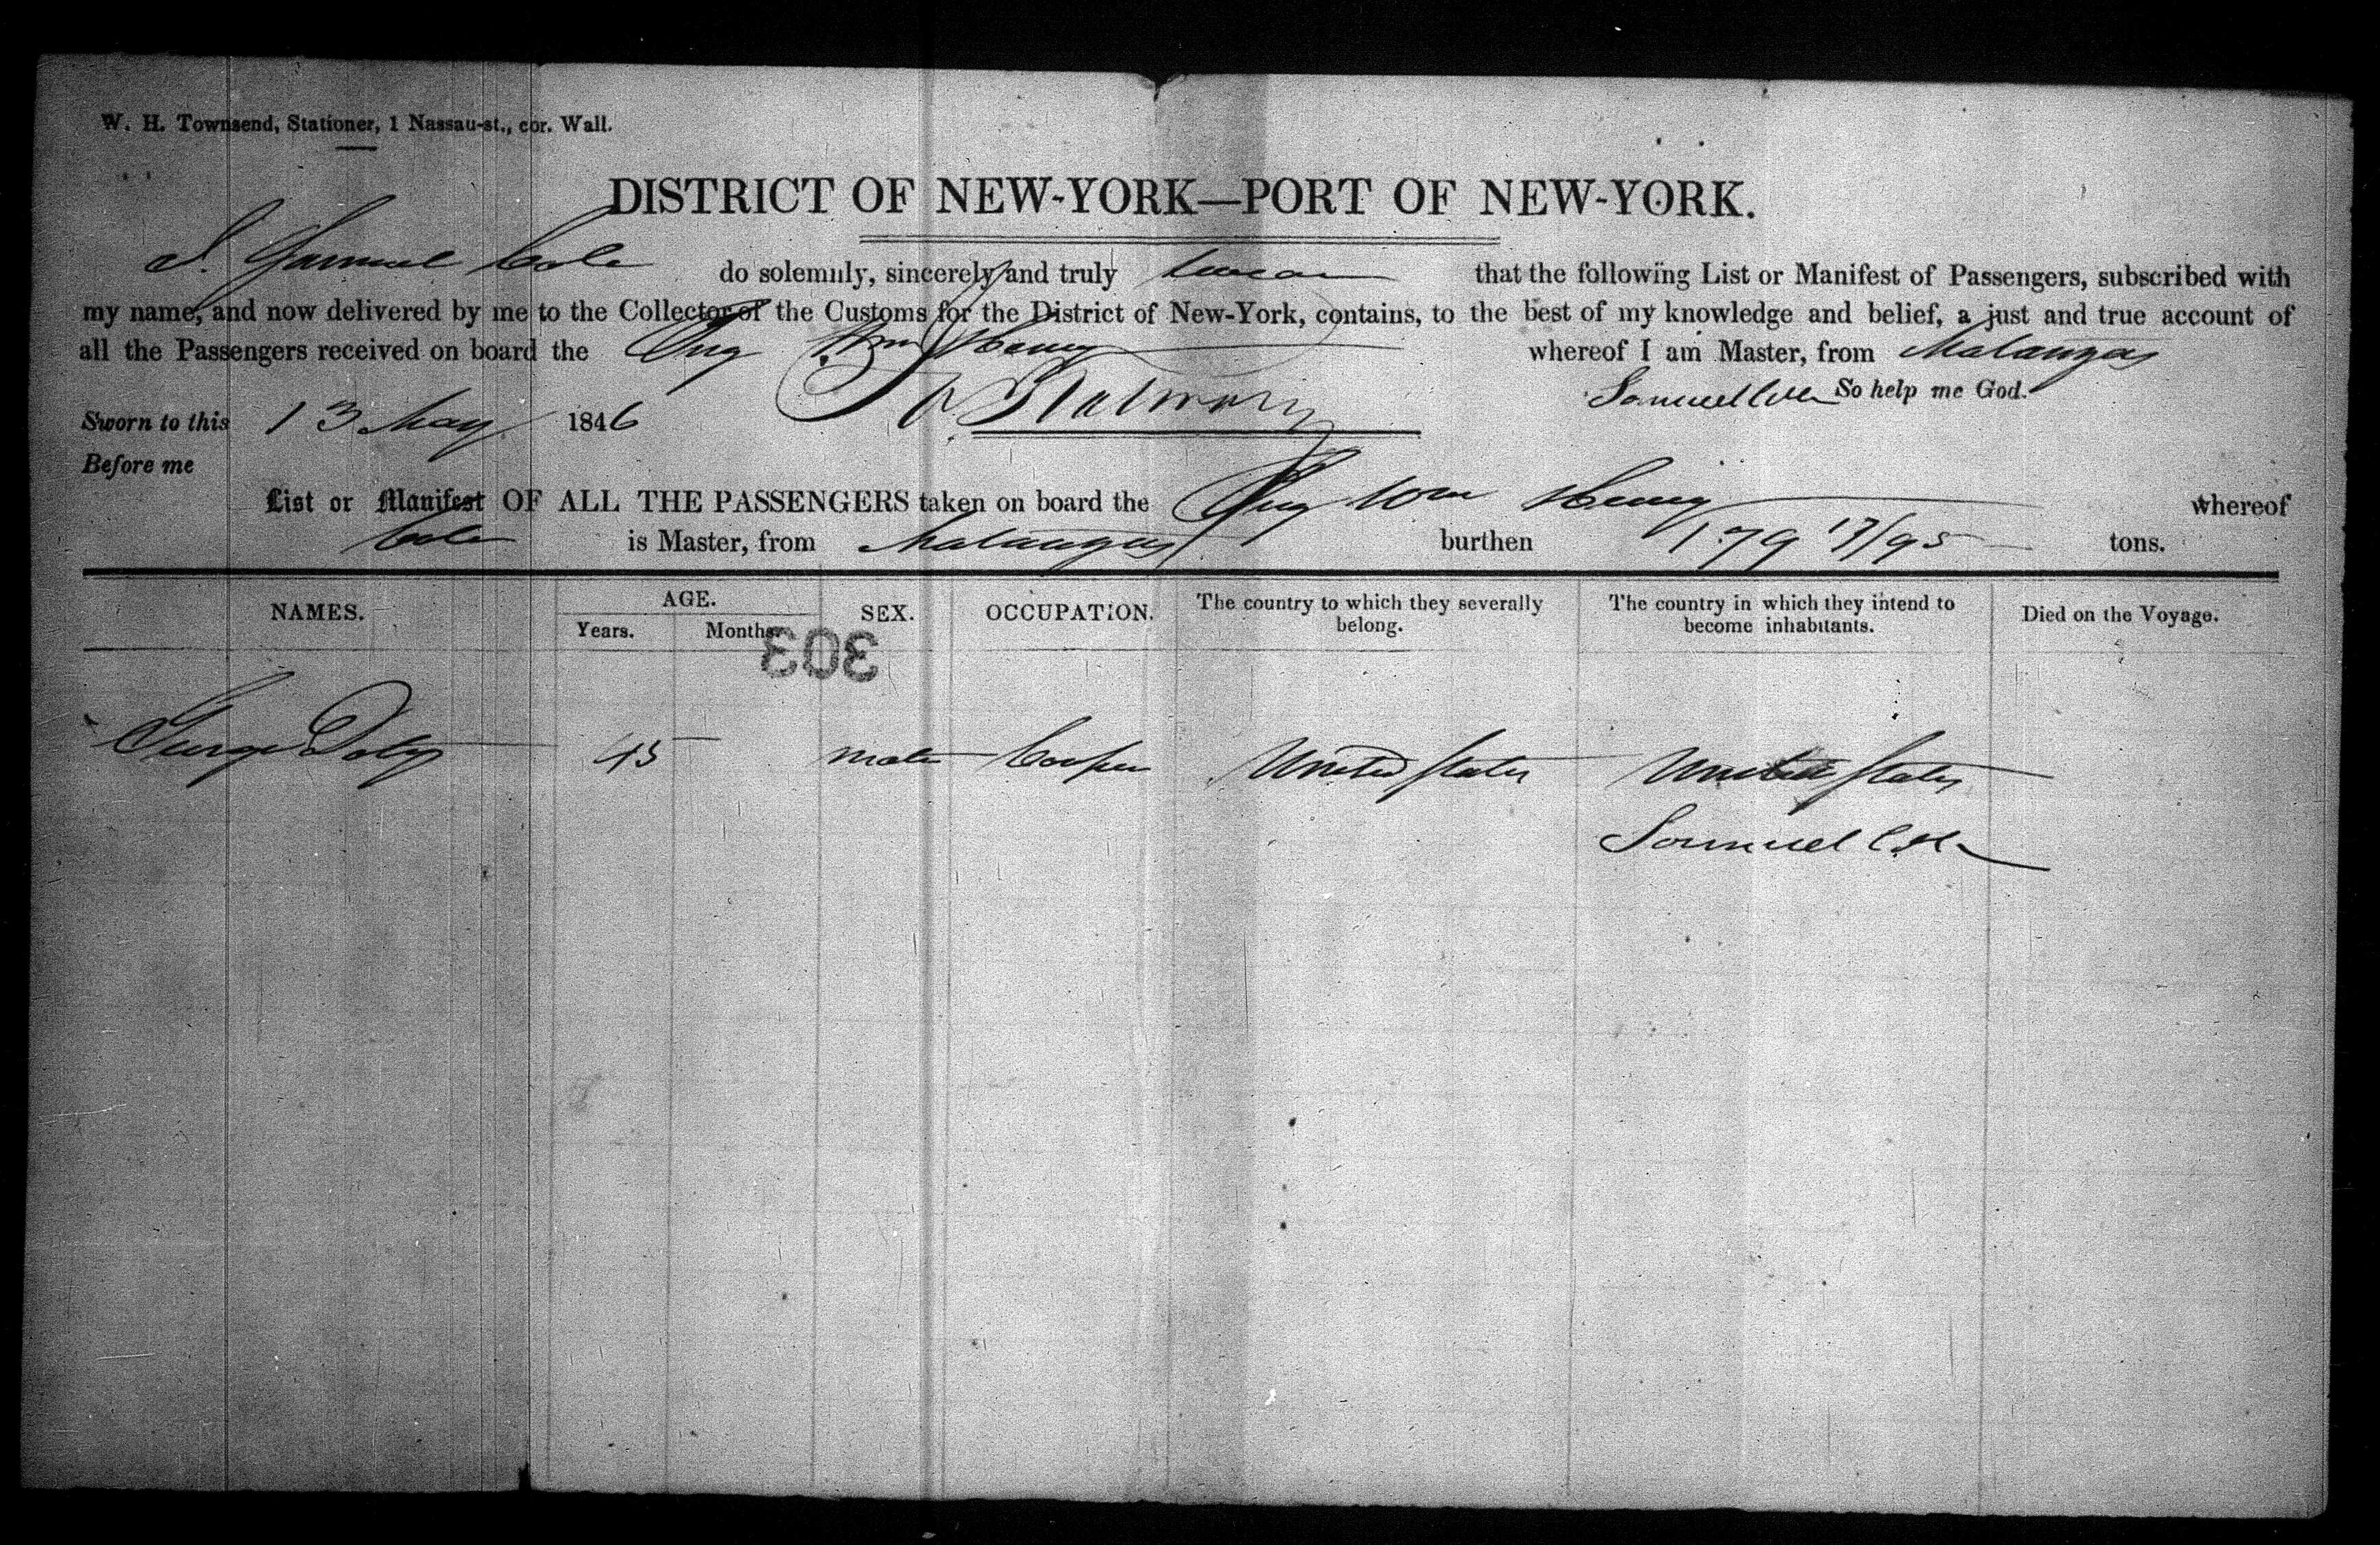 W. H. Townsend, Stationer, 1 Nassau-st., cor. Wall.
DISTRICT OF NEW-YORK—PORT OF NEW-YORK.
I. Samuel Cole do solemnly, sincerely and truly swear that the following List or Manifest of Passengers, subscribed with
my name, and now delivered by me to the Collector of the Customs for the District of New-York, contains, to the best of my knowledge and belief, a just and true account of
all the Passengers received on board the Brig Wm Henry whereof I am Master, from Matanzas
Samuel Cole So help me God.
Sworn to this 13 May 1846
Before me
List or Manifest OF ALL THE PASSENGERS taken on board the Brig Wm Henry whereof
Cole is Master, from Matanzas burthen 179 17/95 tons.
NAMES. AGE. SEX. OCCUPATION. The country to which they severally belong. The country in which they intend to become inhabitants. Died on the Voyage.
Years. Months.
303
George 45 male Cooper United States United States
Samuel Cole